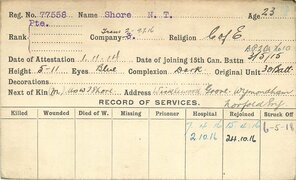 Reg. No. 77558 Name Shore N. T. Age 23
Pte.
Rank Company Religion C of E
Date of Attestation 1.11.14 Date of joining 15th Can. Battn 3/5/15
Height 5-11 Eyes Blue Complexion Dark Original Unit 30 Batt
Decorations
Next of Kin Address Grove Wymondham
RECORD OF SERVICES.
Killed Wounded Died of W. Missing Prisoner Hospital Rejoined Struck Off
7.4.16 15.4.16 6-5-18
2.10.16 24.10.16